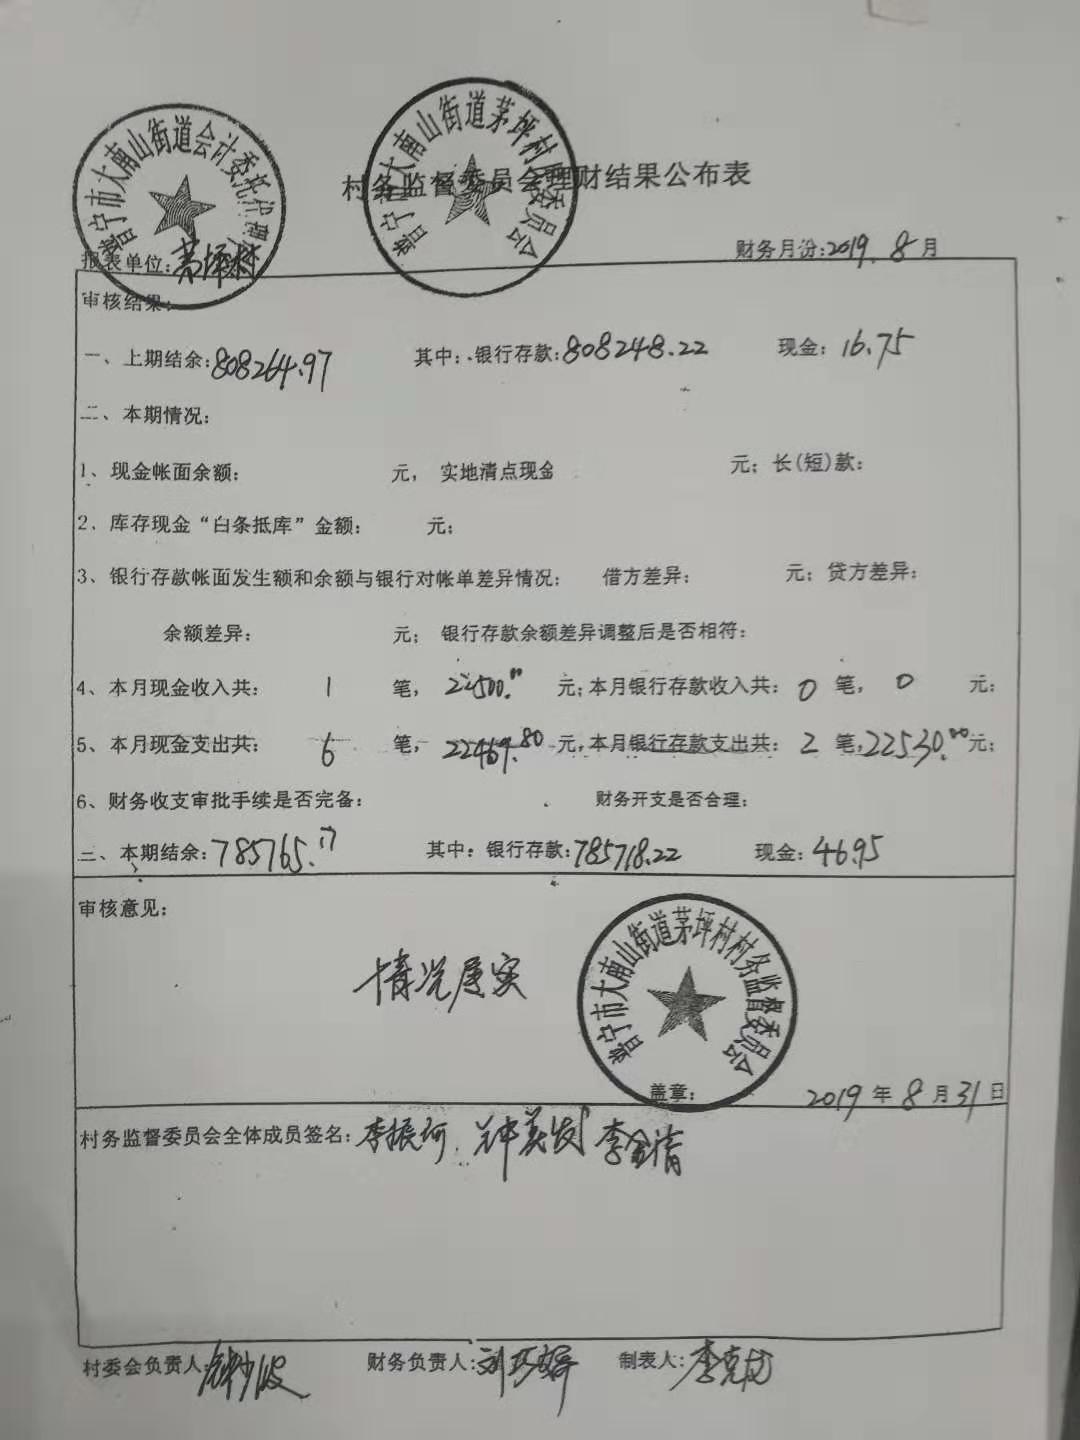 普宁市大南山街道会计委托代理
普宁市大南山街道茅坪村 委员会
村务监督委员会理财结果公布表
报表单位:茅坪村 财务月份:2019.8月
审核结果:
一、上期结余:808264.97 其中:银行存款:808248.22 现金:16.75
二、本期情况:
1、现金帐面余额: 元, 实地清点现金 元;长(短)款:
2、库存现金“白条抵库”金额: 元;
3、银行存款帐面发生额和余额与银行对帐单差异情况: 借方差异: 元;贷方差异:
余额差异: 元; 银行存款余额差异调整后是否相符:
4、本月现金收入共: 1 笔, 22500.00 元;本月银行存款收入共: 0 笔, 0 元;
5、本月现金支出共: 6 笔, 22469.80 元,本月银行存款支出共: 2 笔,22530.00元;
6、财务收支审批手续是否完备: 财务开支是否合理:
三、本期结余:785765.17 其中:银行存款:785718.22 现金:46.95
审核意见:
情况属实
普宁市大南山街道茅坪村村务监督委员会
盖章: 2019年8月31日
村务监督委员会全体成员签名:李振河 钟美发 李金清
村委会负责人: 财务负责人: 制表人: